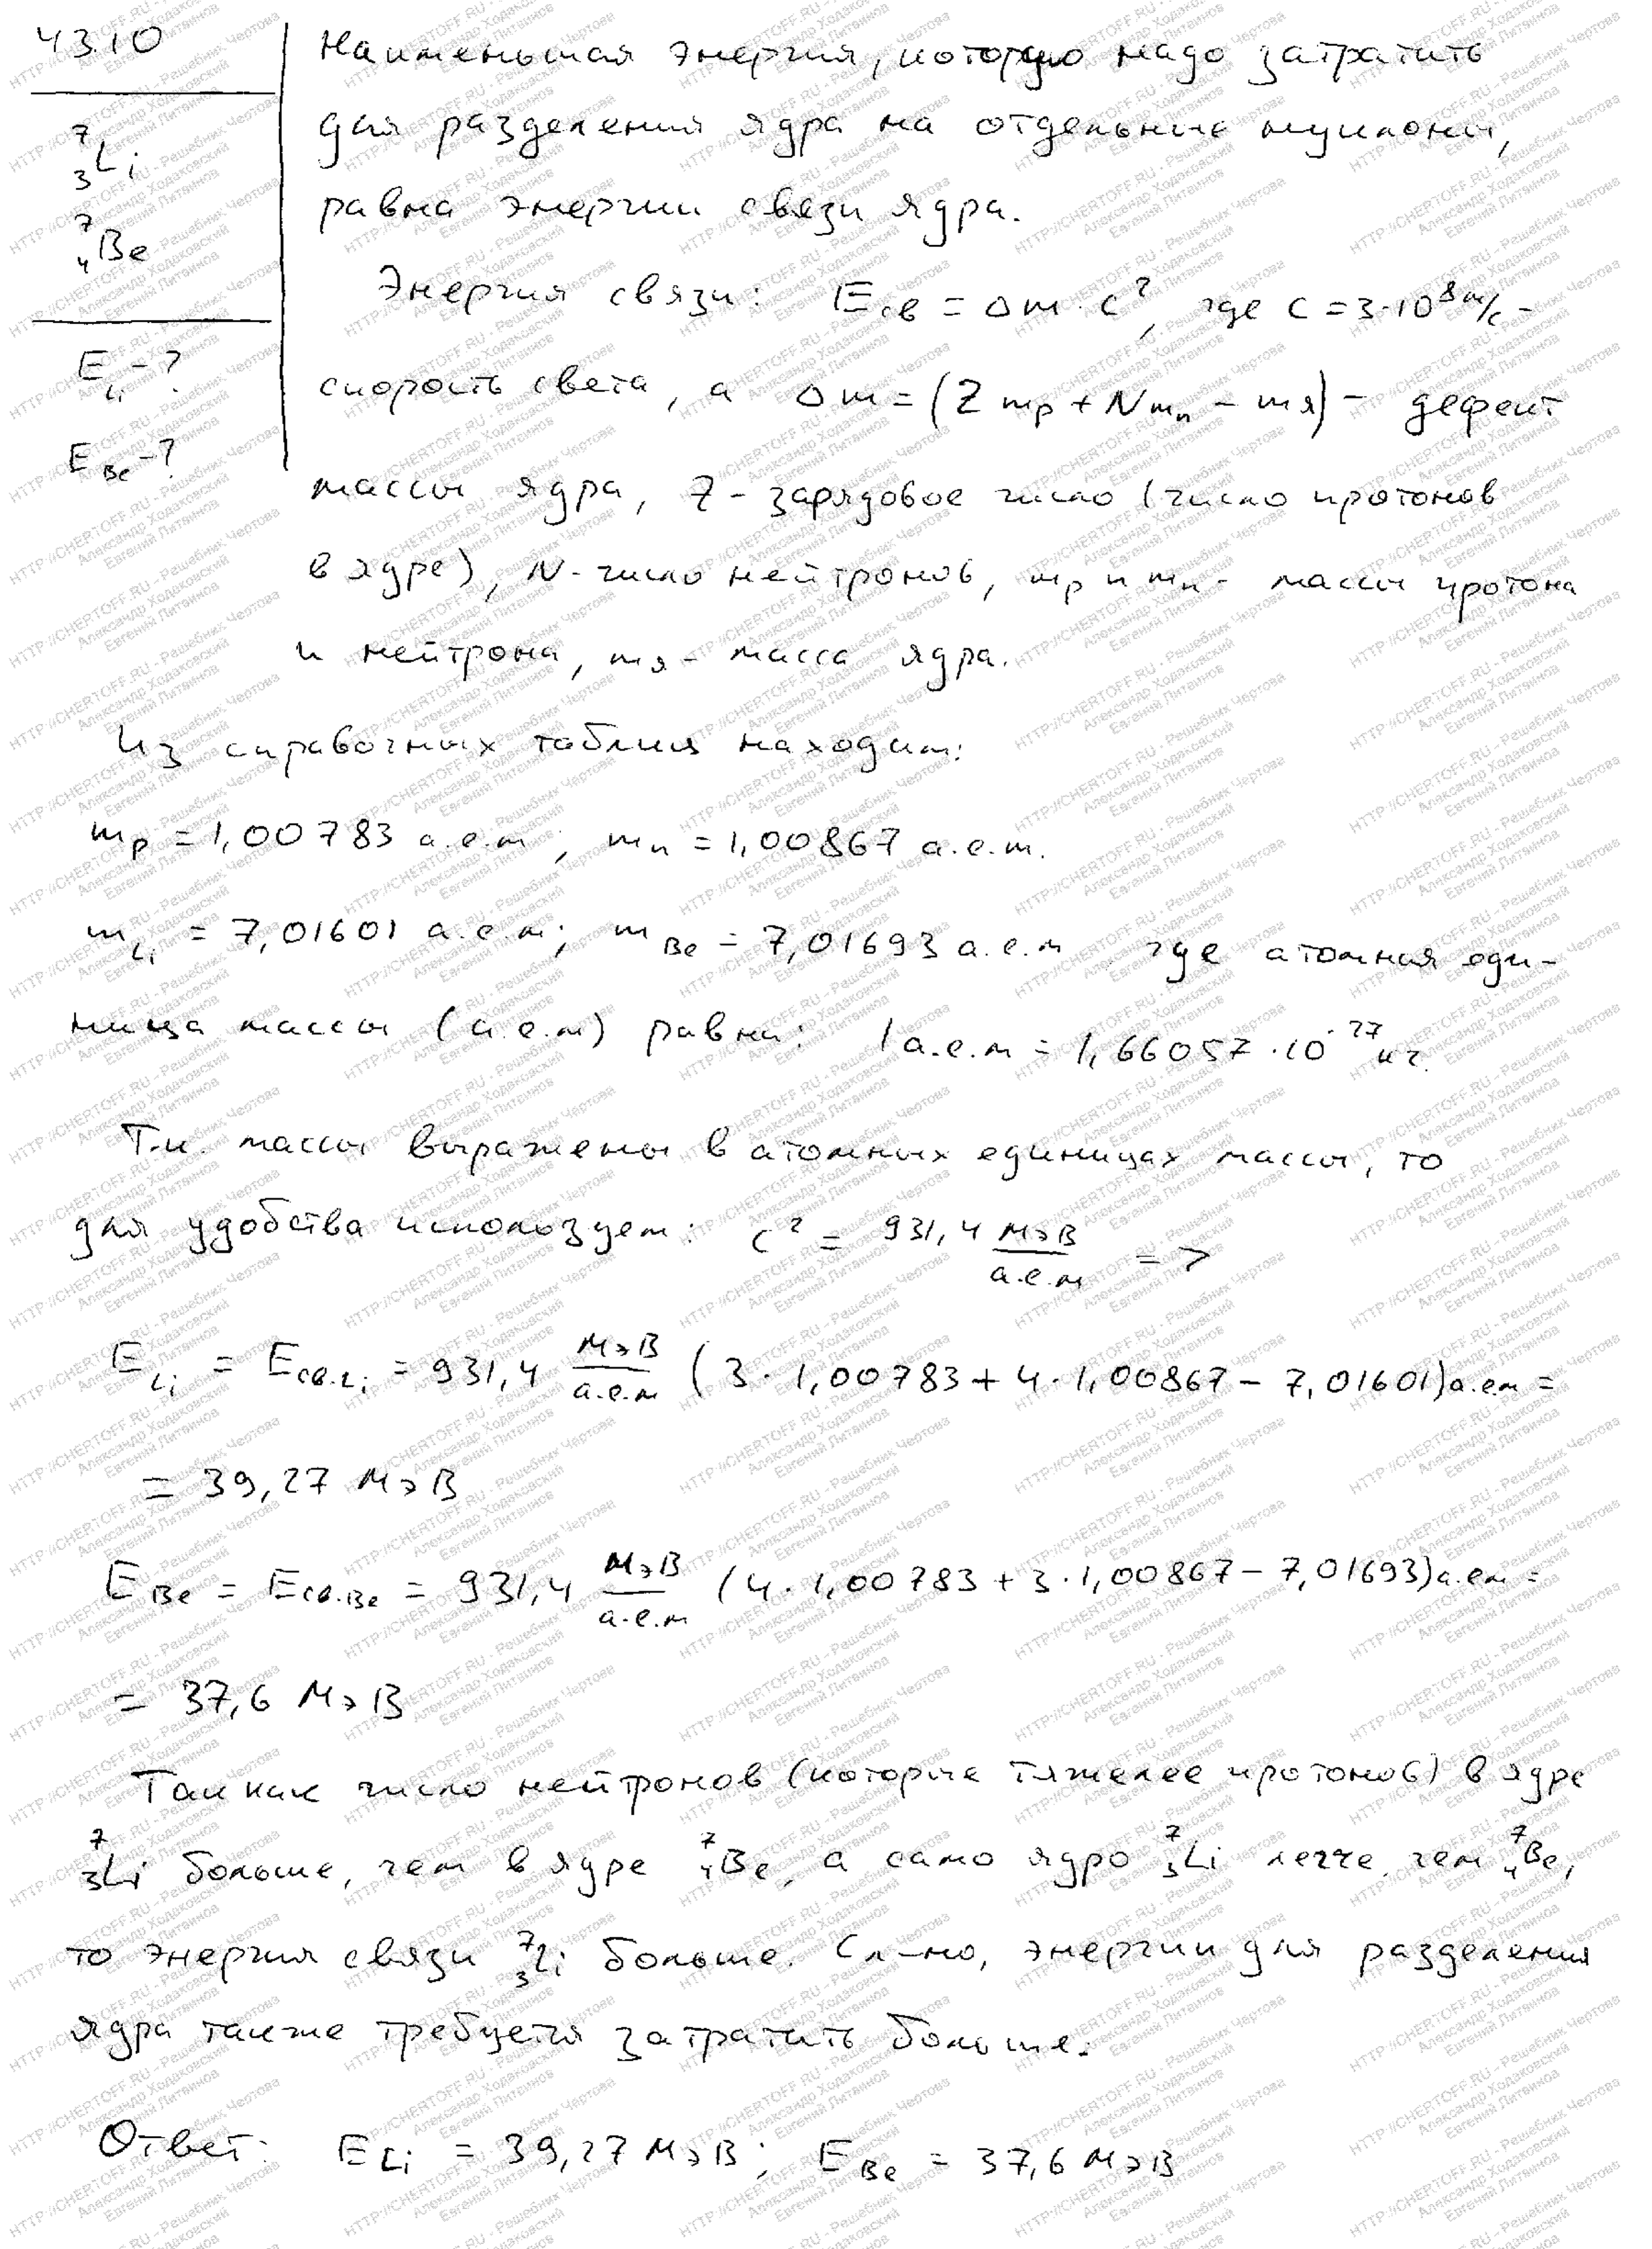 43.10
⁷₃Li
⁷₄Be
E_Li - ?
E_Be - ?
Наименьшая энергия, которую надо затратить
для разделения ядра на отдельные нуклоны,
равна энергии связи ядра.
Энергия связи: Eсв = Δm · c², где c = 3·10⁸ м/с -
скорость света, а Δm = (Z mp + N mn - mя) - дефект
массы ядра, Z - зарядовое число (число протонов
в ядре), N - число нейтронов, mp и mn - массы протона
и нейтрона, mя - масса ядра.
Из справочных таблиц находим:
mp = 1,00783 а.е.м ; mn = 1,00867 а.е.м.
m_Li = 7,01601 а.е.м; m_Be = 7,01693 а.е.м , где атомная еди-
ница массы (а.е.м) равна: 1 а.е.м = 1,66057·10⁻²⁷ кг.
Т.к. массы выражены в атомных единицах массы, то
для удобства используем: c² = 931,4 МэВ/а.е.м =>
E_Li = Eсв.Li = 931,4 МэВ/а.е.м (3 · 1,00783 + 4 · 1,00867 - 7,01601) а.е.м =
= 39,27 МэВ
E_Be = Eсв.Be = 931,4 МэВ/а.е.м (4 · 1,00783 + 3 · 1,00867 - 7,01693) а.е.м =
= 37,6 МэВ
Так как число нейтронов (которые тяжелее протонов) в ядре
⁷₃Li больше, чем в ядре ⁷₄Be, а само ядро ⁷₃Li легче, чем ⁷₄Be,
то энергия связи ⁷₃Li больше. Сл-но, энергии для разделения
ядра также требуется затратить больше.
Ответ: E_Li = 39,27 МэВ ; E_Be = 37,6 МэВ
HTTP://CHERTOFF.RU - Решебник Чертова
Александр Ходаковский
Евгений Литвинов